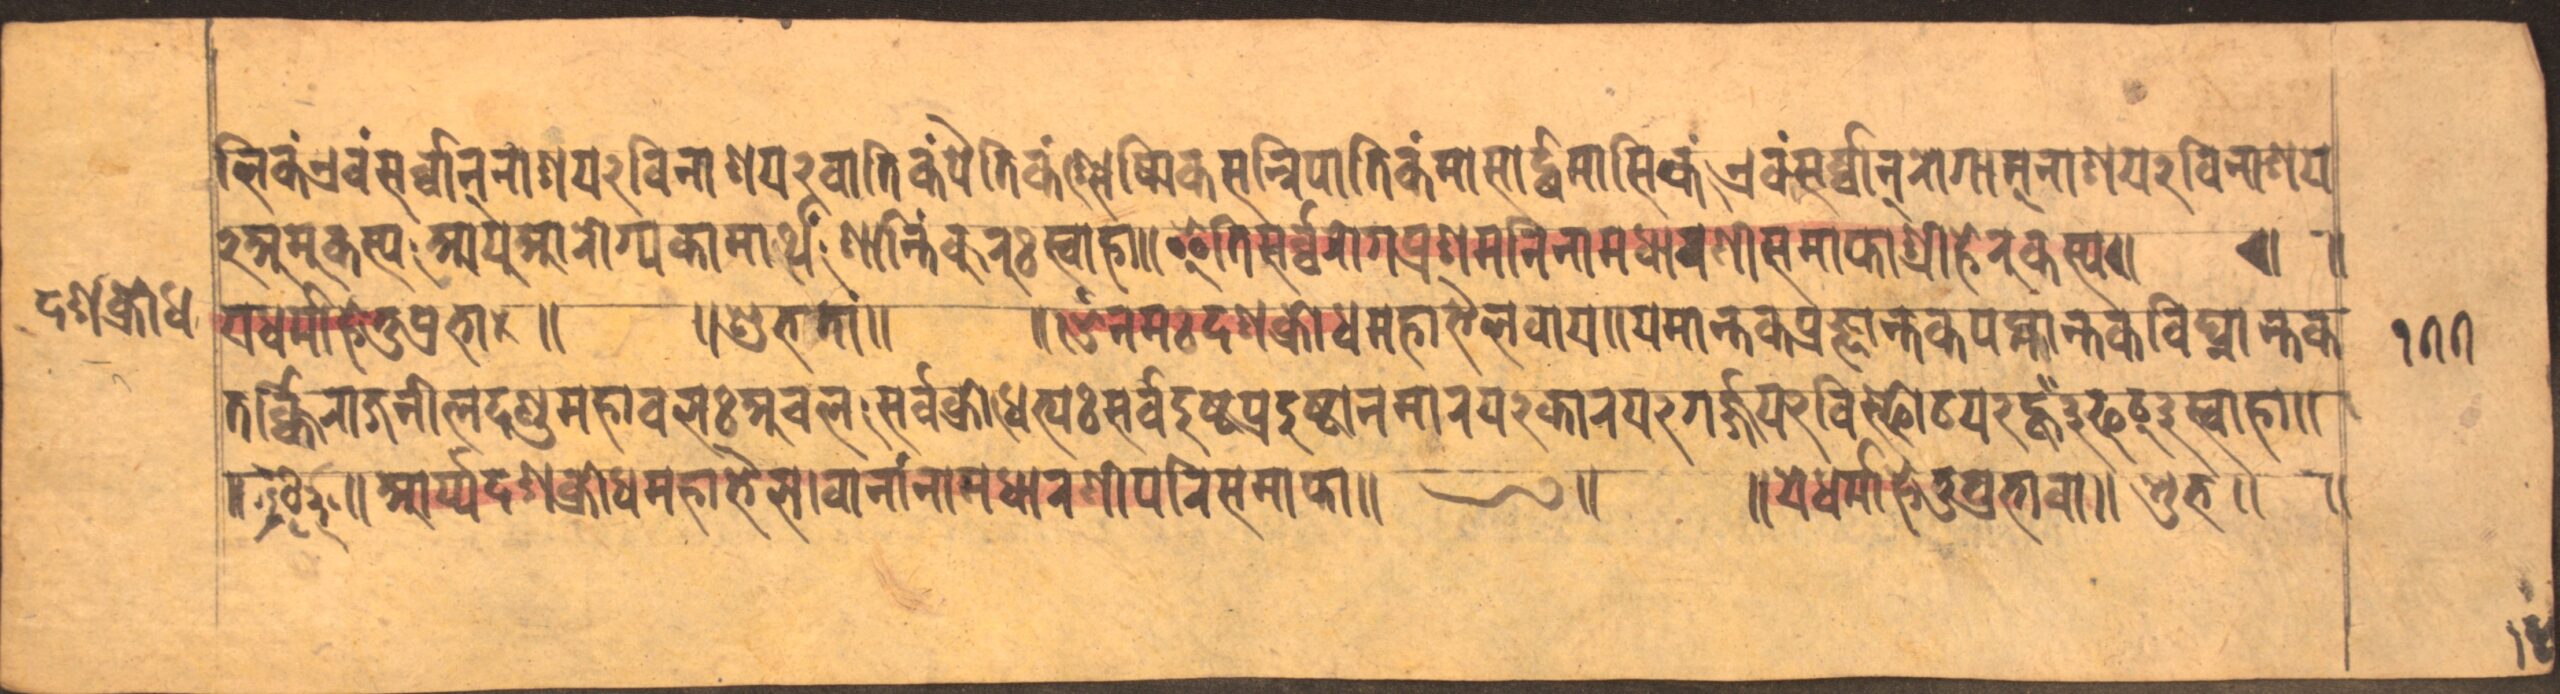 लिकं एवं सर्व्वान् नाशय२ विनाशय२ वातिकं पैतिकं श्लेष्मिक सन्निपातिकं मासार्द्धमासिकं एकं सर्व्वान् रोगान् नाशय२ विनाशय
२ अमुकस्य आयु आरोग्य कामार्थं शान्तिं कुरुः स्वाहा॥ इति सर्व्वरोगप्रशमनि नाम धारणी समाप्ता श्री हेरुकस्य॥ ॥ ॥
दशक्रोध
यधर्मा हेतुप्रभा॥ ॥शुभ मां॥ ॥ॐ नमः दशक्रोधमहाभैलवाय॥ यमान्तक प्रज्ञान्तक पद्मान्तक विघ्नान्तक
१११
तर्क्किराज नीलदण्ड महावलः अचल सर्वक्रोधेत्यः सर्वदुष्टप्रदुष्टान मारय२ कारय२ गर्ज्जय२ विस्फोटय२ हूँ३ फट्३ स्वाहा॥
॥ ॥ आर्य्यदशक्रोधमहाभैलावानां नाम धारणी परिसमाप्ता॥ ॥ ॥ येधर्मा हेतुप्रभावा॥ शुभ॥ ॥